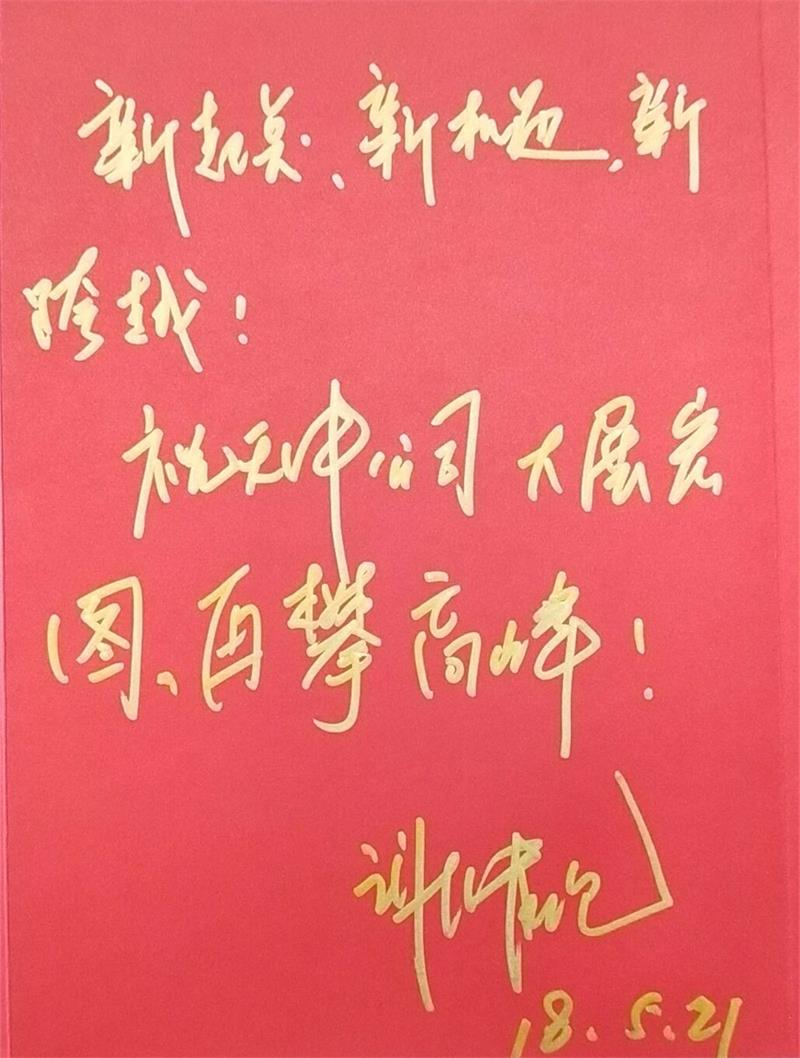 新起点、新机遇、新
跨越!
祝天申公司大展宏
图、再攀高峰!
18.5.21